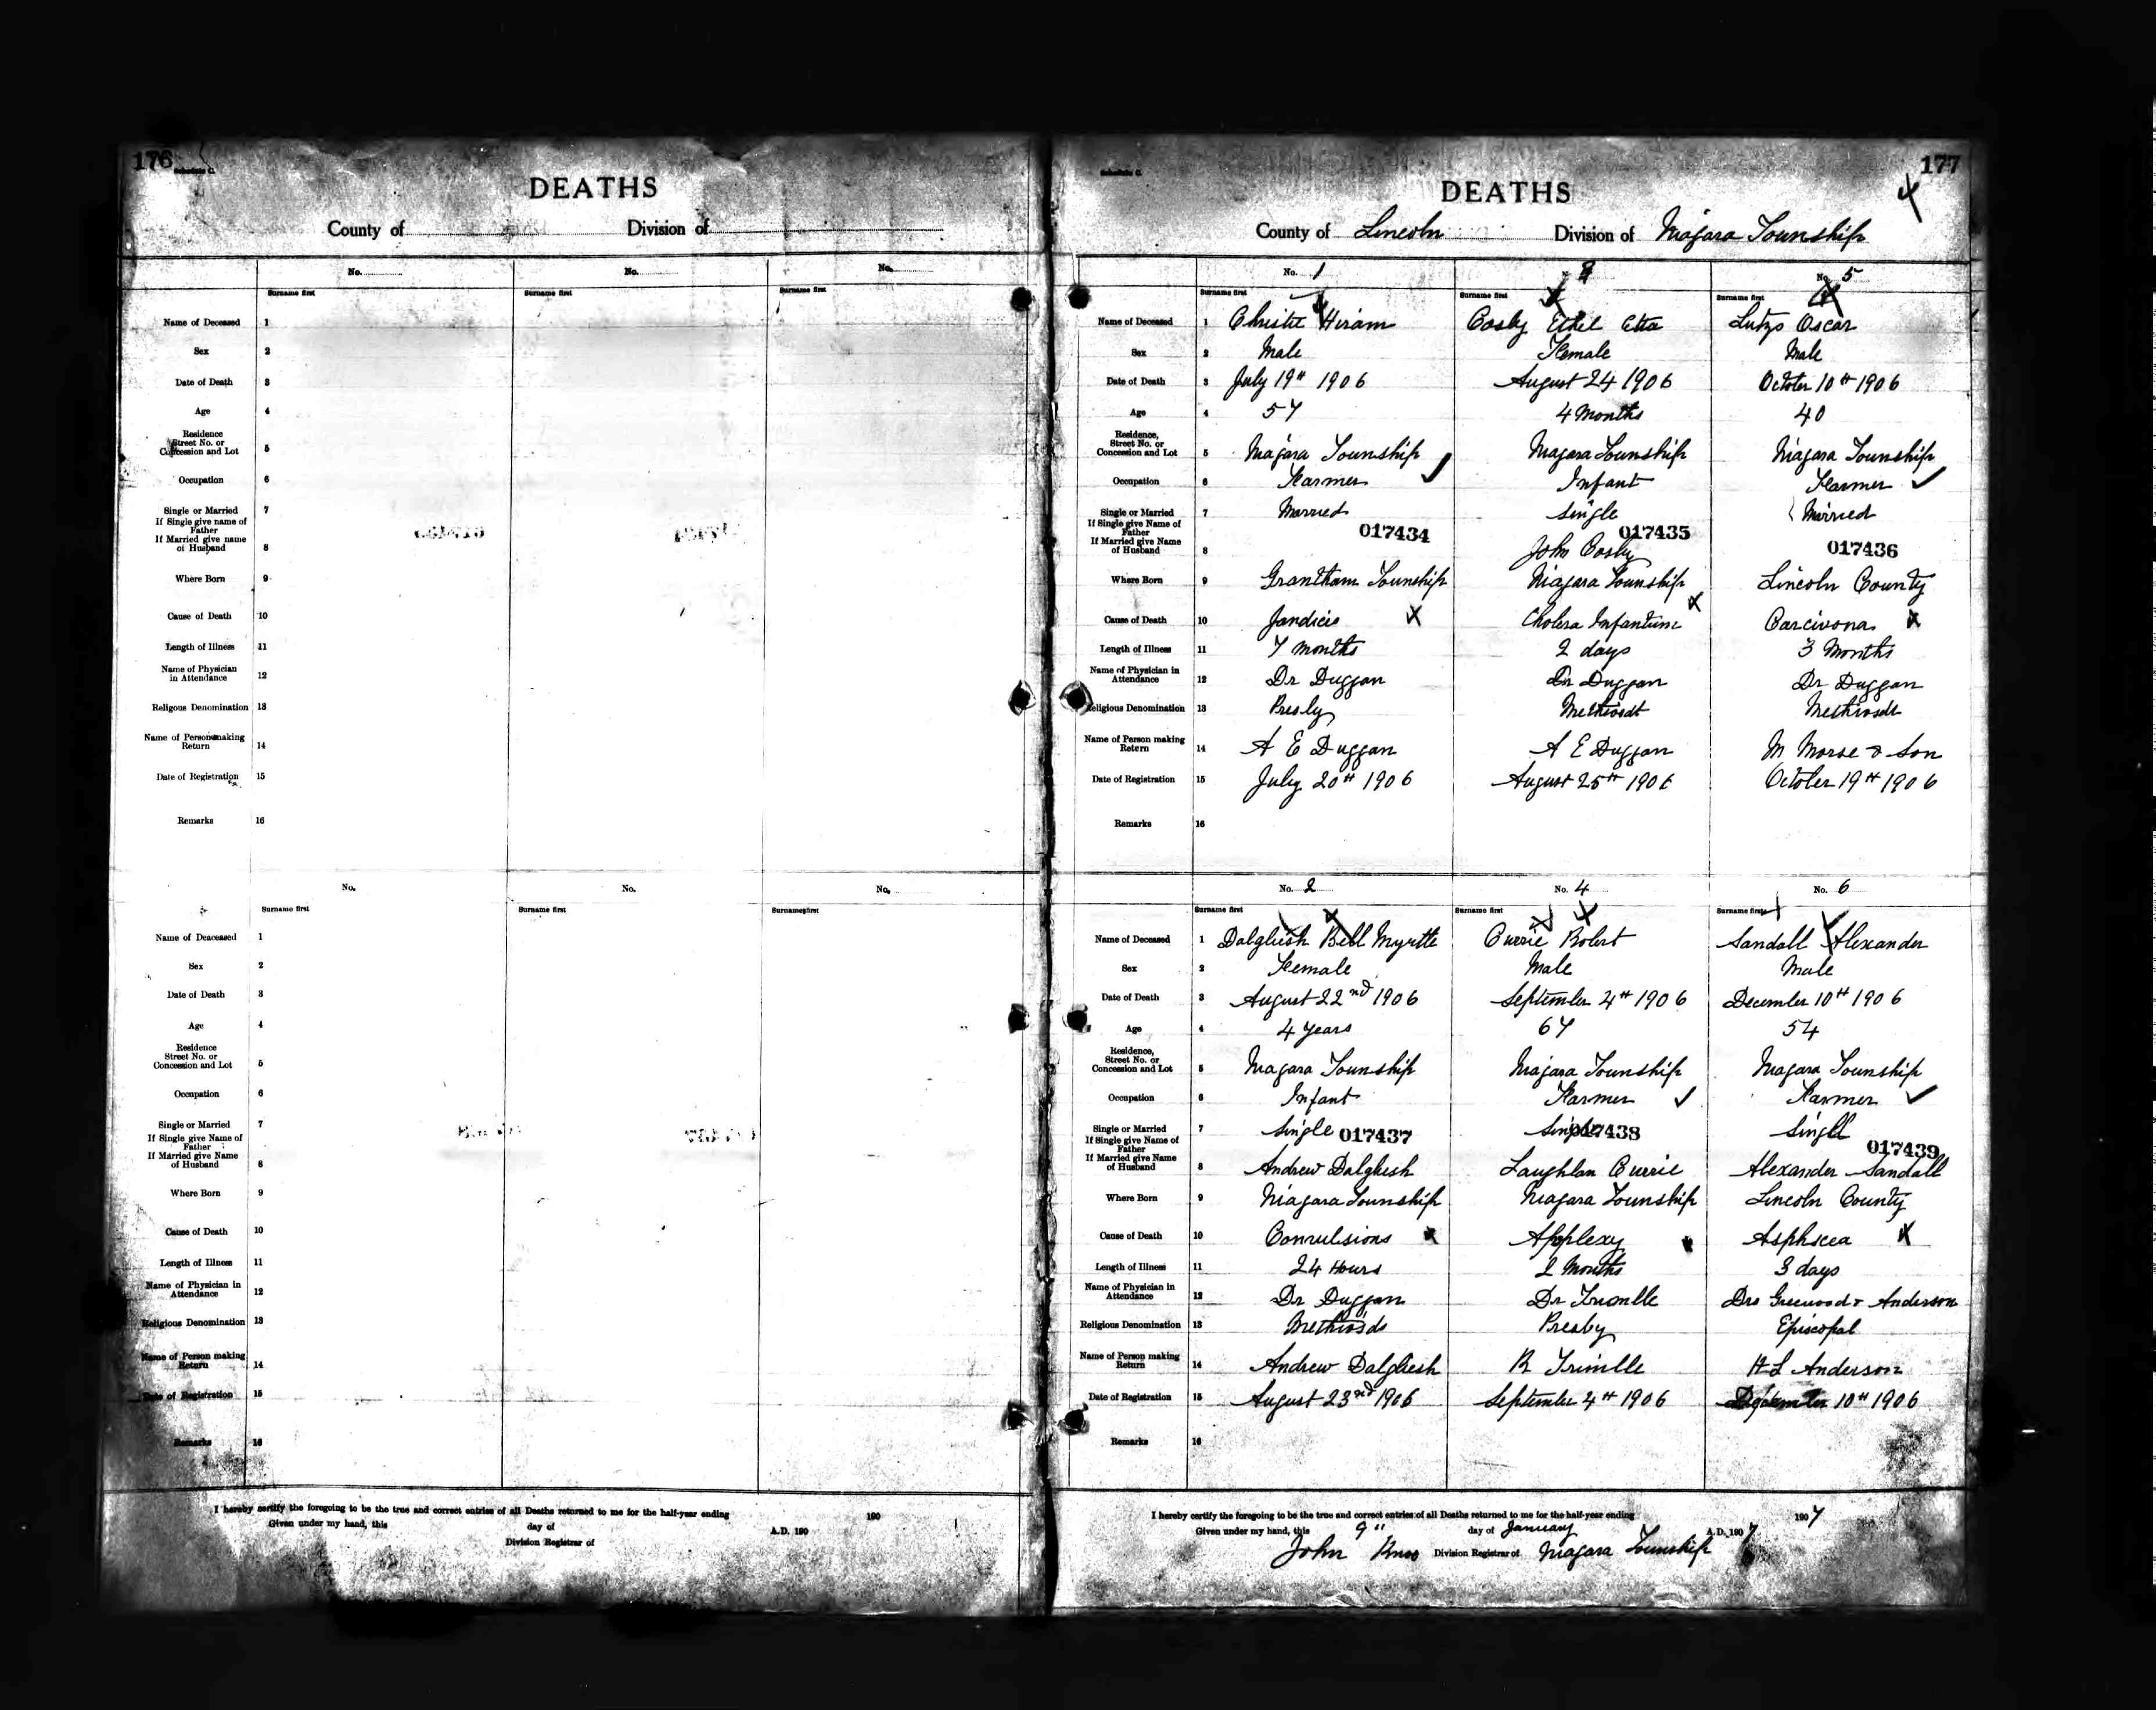 176
Schedule C.
DEATHS
County of Division of
No. No. No.
Surname first Surname first Surname first
Name of Deceased 1
Sex 2
Date of Death 3
Age 4
Residence
Street No. or
Concession and Lot 5
Occupation 6
Single or Married 7
If Single give name of
Father
If Married give name
of Husband 8
Where Born 9
Cause of Death 10
Length of Illness 11
Name of Physician
in Attendance 12
Religous Denomination 13
Name of Person making
Return 14
Date of Registration 15
Remarks 16
No. No. No.
Surname first Surname first Surname first
Name of Deaceased 1
Sex 2
Date of Death 3
Age 4
Residence
Street No. or
Concession and Lot 5
Occupation 6
Single or Married 7
If Single give Name of
Father
If Married give Name
of Husband 8
Where Born 9
Cause of Death 10
Length of Illness 11
Name of Physician in
Attendance 12
Religious Denomination 13
Name of Person making
Return 14
Date of Registration 15
Remarks 16
I hereby certify the foregoing to be the true and correct entries of all Deaths returned to me for the half-year ending 190
Given under my hand, this day of A.D. 190
Division Registrar of
177
Schedule C.
4
DEATHS
County of Lincoln Division of Niagara Township
No. 1 No. 5
Surname first Surname first Surname first
Name of Deceased 1 Christie Hiram Cosby Ethel Etta Lutzs Oscar
Sex 2 Male Female Male
Date of Death 3 July 19th 1906 August 24 1906 October 10th 1906
Age 4 57 4 Months 40
Residence,
Street No. or
Concession and Lot 5 Niagara Township Niagara Township Niagara Township
Occupation 6 Farmer Infant Farmer
Single or Married 7 Married Single Married
If Single give Name of
Father 017434 017435 017436
If Married give Name
of Husband 8 John Cosby
Where Born 9 Grantham Township Niagara Township Lincoln County
Cause of Death 10 Jandices Cholera Infantum Carcivona
Length of Illness 11 7 months 2 days 3 Months
Name of Physician in
Attendance 12 Dr Duggan Dr Duggan Dr Duggan
Religious Denomination 13 Presby Methiosdt Methiosdt
Name of Person making
Return 14 A E Duggan A E Duggan M Morse & Son
Date of Registration 15 July 20th 1906 August 25th 1906 October 19th 1906
Remarks 16
No. 2 No. 4 No. 6
Surname first Surname first Surname first
Name of Deceased 1 Dalgliesh Bell Myrtle Currie Robert Sandall Alexander
Sex 2 Female Male Male
Date of Death 3 August 22nd 1906 September 4th 1906 December 10th 1906
Age 4 4 years 67 54
Residence,
Street No. or
Concession and Lot 5 Niagara Township Niagara Township Niagara Township
Occupation 6 Infant Farmer Farmer
Single or Married 7 Single 017437 Single 017438 Single
If Single give Name of
Father 017439
If Married give Name
of Husband 8 Andrew Dalgliesh Laughlan Currie Alexander Sandall
Where Born 9 Niagara Township Niagara Township Lincoln County
Cause of Death 10 Convulsions Apoplexy Asphscea
Length of Illness 11 24 Hours 2 Months 3 days
Name of Physician in
Attendance 12 Dr Duggan Dr Trimble Drs Greenwood & Anderson
Religious Denomination 13 Methiosds Presby Episcopal
Name of Person making
Return 14 Andrew Dalgliesh R Trimble H L Anderson
Date of Registration 15 August 23rd 1906 September 4th 1906 December 10th 1906
Remarks 16
I hereby certify the foregoing to be the true and correct entries of all Deaths returned to me for the half-year ending 1907
Given under my hand, this 9" day of January A.D. 1907
John Division Registrar of Niagara Township